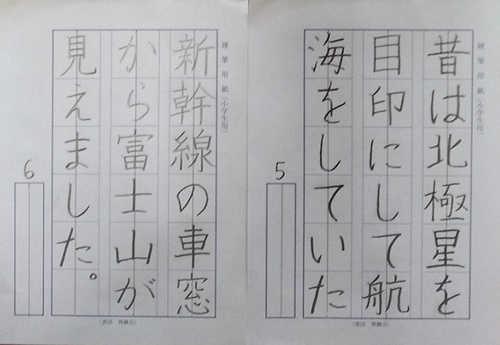 硬筆用紙(小学生用)
昔は北極星を
目印にして航
海をしていた
5
硬筆用紙(小学生用)
新幹線の車窓
から富士山が
見えました。
6